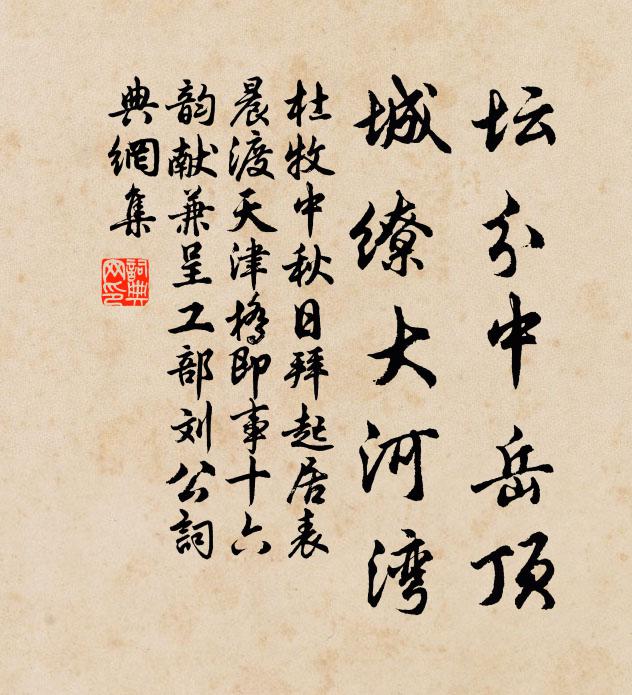 坛分中岳顶
城缭大河湾
杜牧中秋日拜起居表
晨渡天津桥即事十六
韵献兼呈工部刘公詞
典網集
詞典網印